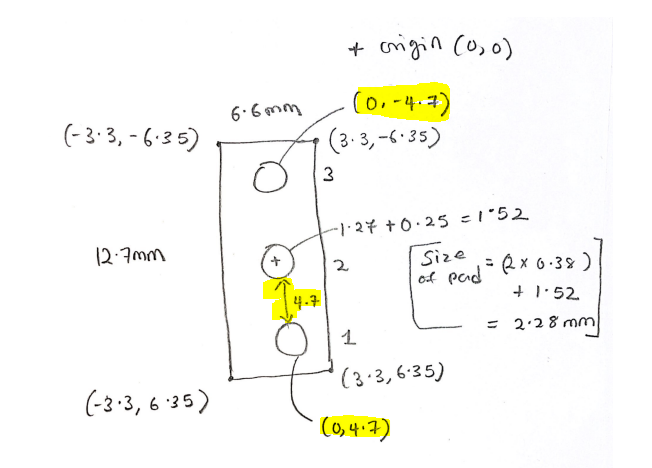 + origin (0,0)
(0,-4.7)
6.6mm
(-3.3,-6.35)
(3.3,-6.35)
3
1.27 + 0.25 = 1.52
12.7mm
+
2
Size of pad = (2 x 0.38)
+ 1.52
= 2.28 mm
4.7
1
(3.3,6.35)
(-3.3, 6.35)
(0,4.7)